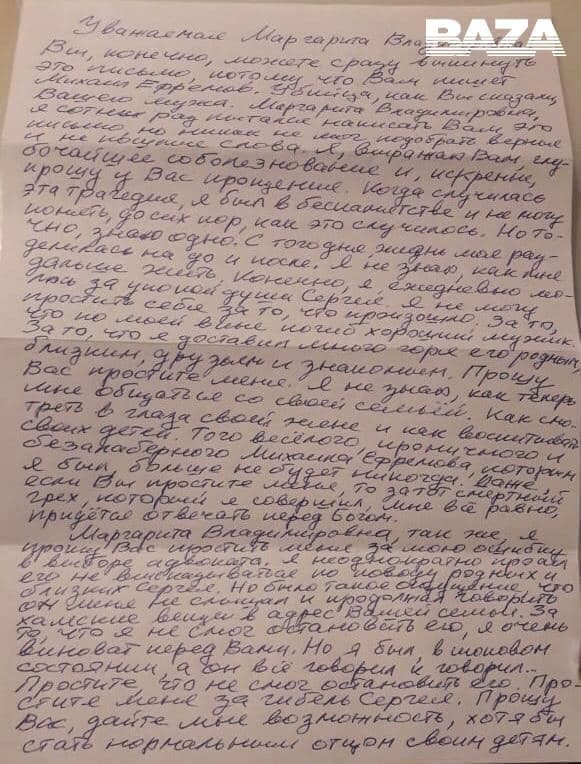 BAZA
Уважаемая Маргарита Владимировна
Вы, конечно, можете сразу выкинуть
это письмо, потому что Вам пишет
Михаил Ефремов. Убийца, как Вы сказали,
Вашего мужа. Маргарита Владимировна,
я сотни раз пытался написать Вам это
письмо, но никак не мог подобрать верные
и не пошлые слова. Я, выражаю Вам, глу-
бочайшее соболезнование и, искренне,
прошу у Вас прощение. Когда случилась
эта трагедия, я был в беспамятстве и не могу
понять, до сих пор, как это случилось. Но то-
чно, знаю одно. С того дня, жизнь моя раз-
делилась на до и после. Я не знаю, как мне
дальше жить. Конечно, я ежедневно мо-
люсь за упокой души Сергея. Я не могу
простить себя за то, что произошло. За то,
что по моей вине погиб хороший мужик.
За то, что я доставил много горя его родным,
близким, друзьям и знакомым. Прошу
Вас простите меня. Я не знаю, как теперь
мне общаться со своей семьёй. Как смо-
треть в глаза своей жене и как воспитывать
своих детей. Того весёлого, ироничного и
безалаберного Михаила Ефремова, которым
я был, больше не будет никогда. Даже
если Вы простите меня, то за этот смертный
грех, который я совершил, мне всё равно,
придётся отвечать перед Богом.
Маргарита Владимировна, так же, я
прошу Вас простить меня за мою ошибку
в выборе адвоката. Я неоднократно просил
его не высказываться по поводу родных и
близких Сергея. Но было такое ощущение, что
он меня не слышал и продолжал говорить
хамские вещи в адрес Вашей семьи. За
то, что я не смог остановить его, я очень
виноват перед Вами. Но я был в шоковом
состоянии, а он всё говорил и говорил...
Простите, что не смог остановить его. Про-
стите меня за гибель Сергея. Прошу
Вас, дайте мне возможность, хотя бы
стать нормальным отцом своим детям.